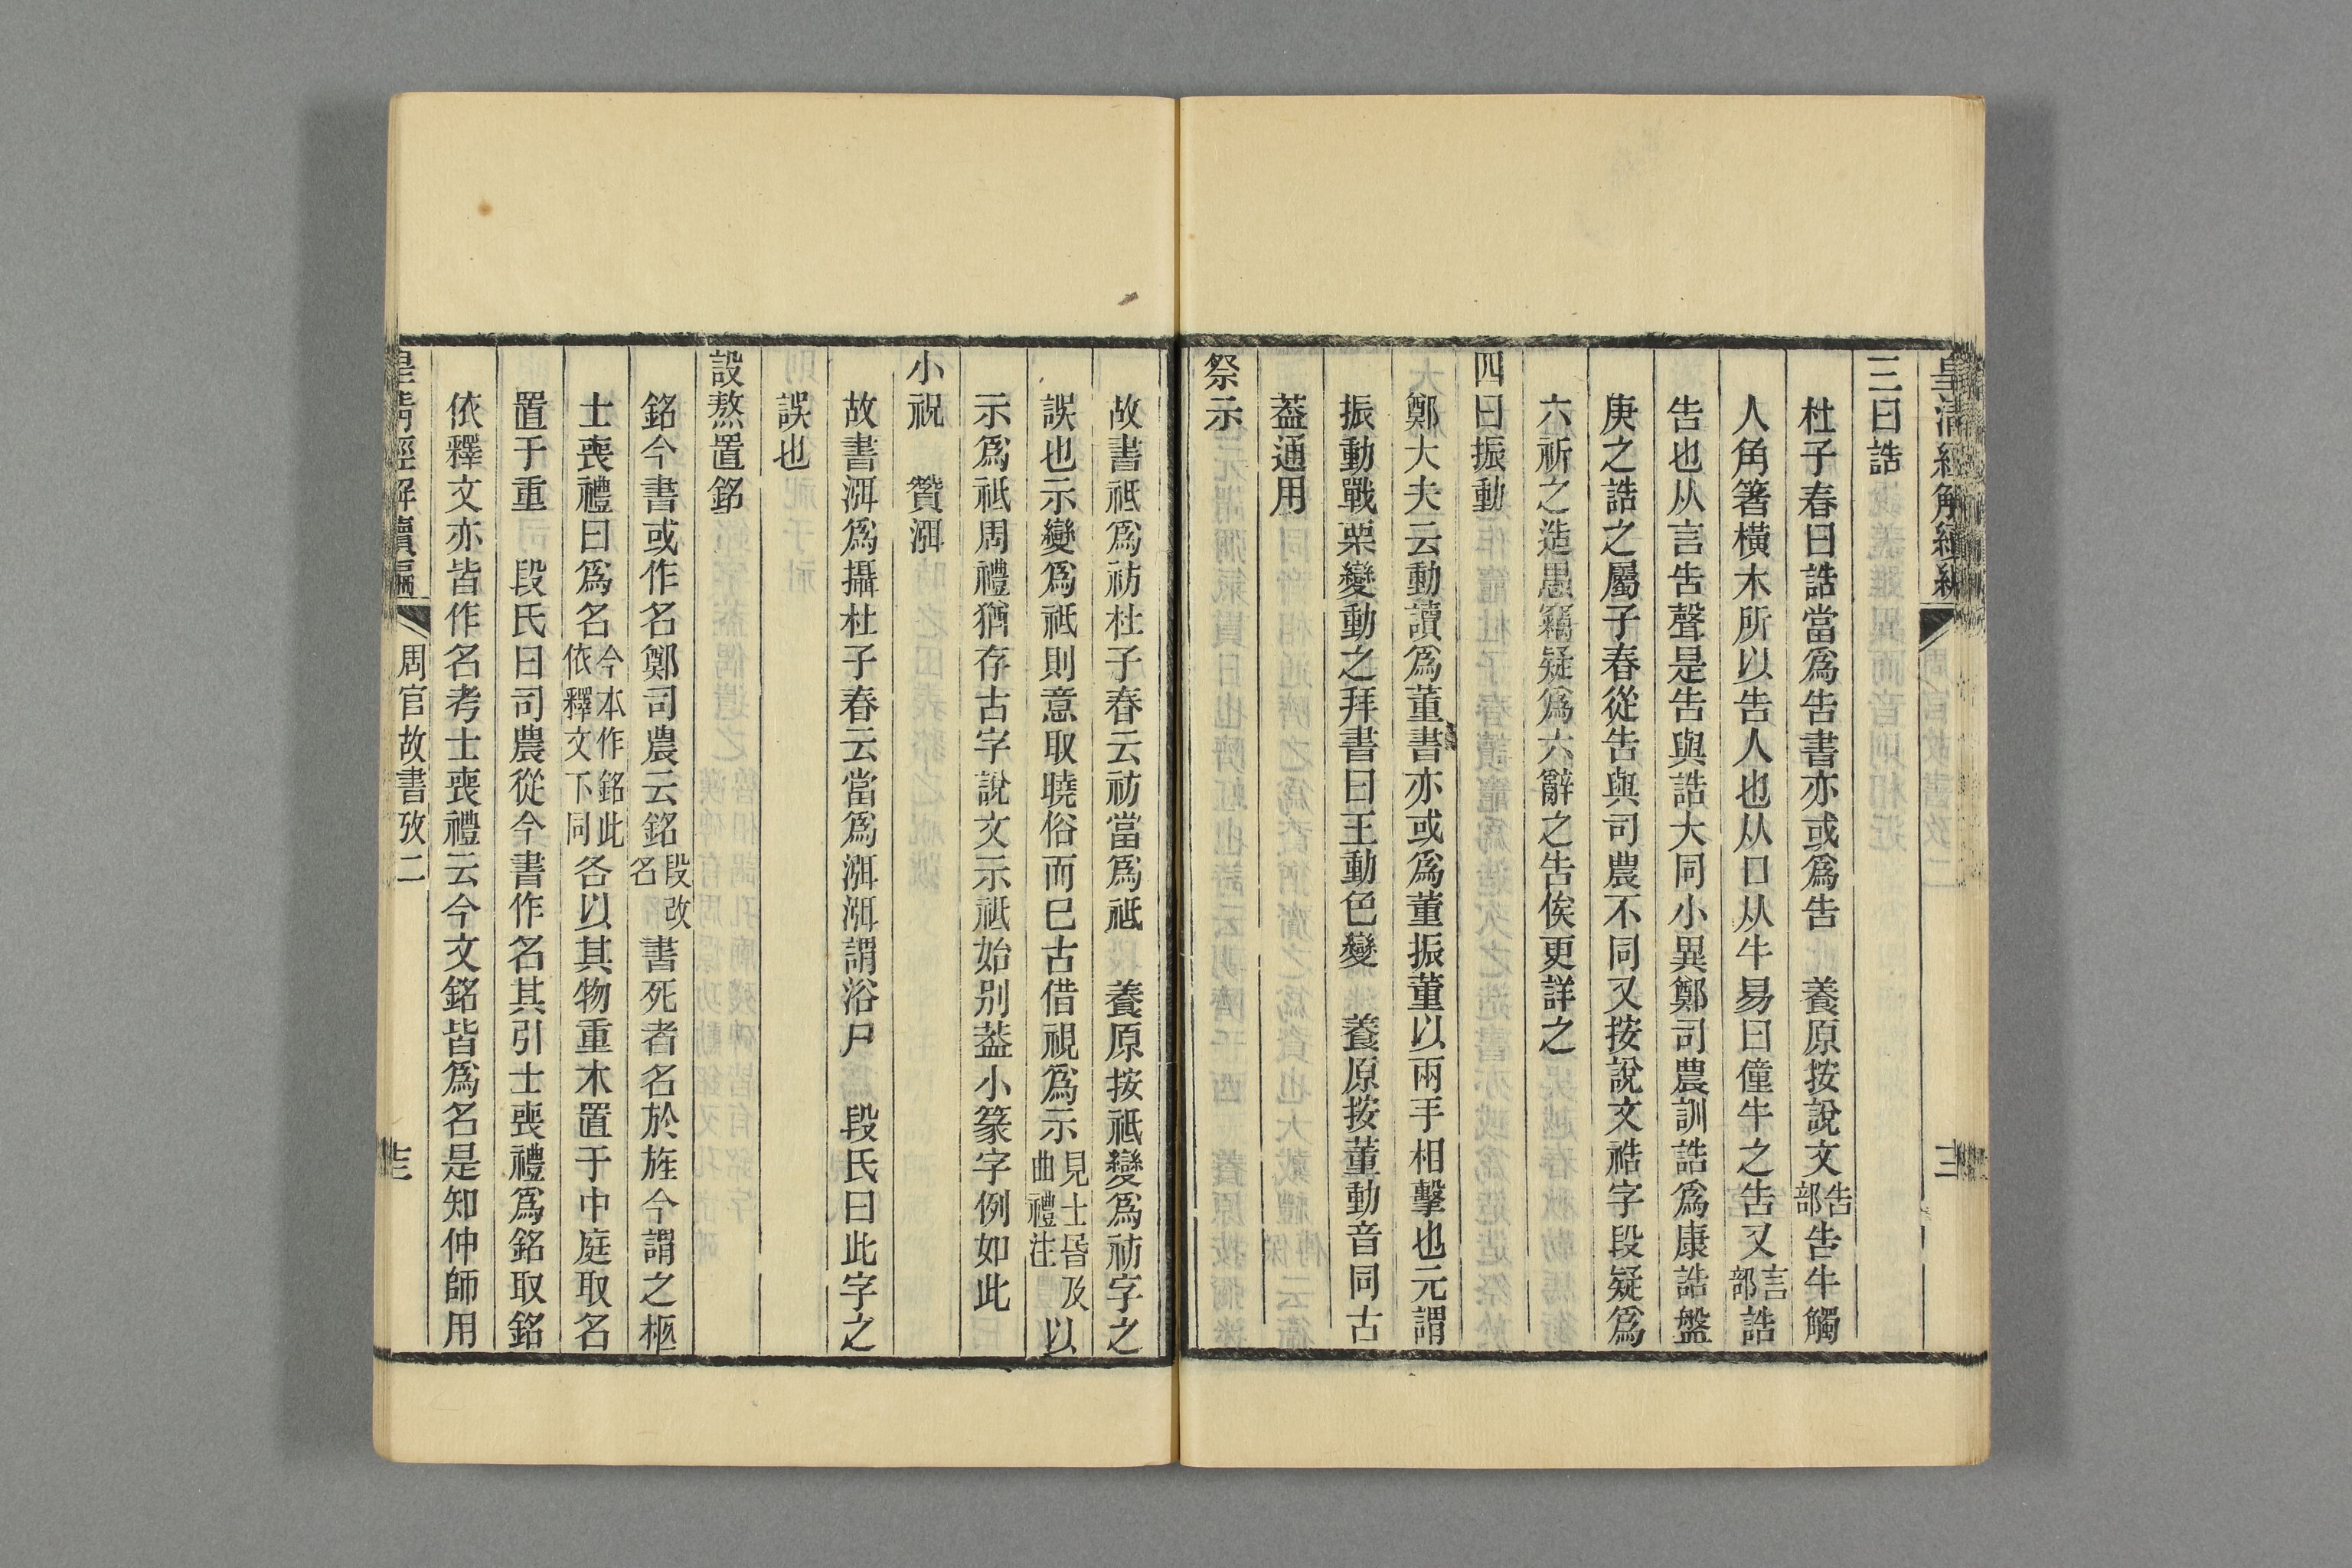 皇清經解續編
三曰誥
杜子春曰誥當爲告書亦或爲告　養原按說文告部告牛觸
人角箸橫木所以告人也从口从牛易曰僮牛之告又言部誥
告也从言告聲是告與誥大同小異鄭司農訓誥爲康誥盤
庚之誥之屬子春從告與司農不同又按說文祰字段疑爲
六祈之造愚竊疑爲六辭之告俟更詳之
四曰振動
鄭大夫云動讀爲董書亦或爲董振董以兩手相擊也元謂
振動戰栗變動之拜書曰王動色變　養原按董動音同古
葢通用
祭示
故書祗爲祊杜子春云祊當爲祗　養原按祗變爲祊字之
誤也示變爲祗則意取曉俗而已古借視爲示見士昏及曲禮注以
示爲祗周禮猶存古字說文示祗始别葢小篆字例如此
小祝　贊渳
故書渳爲攝杜子春云當爲渳渳謂浴尸　段氏曰此字之
誤也
設熬置銘
銘今書或作名鄭司農云銘段改名書死者名於旌今謂之柩
士喪禮曰爲名今本作銘此依釋文下同各以其物重木置于中庭取名
置于重　段氏曰司農從今書作名其引士喪禮爲銘取銘
依釋文亦皆作名考士喪禮云今文銘皆爲名是知仲師用
皇清經解續編　周官故書攷二